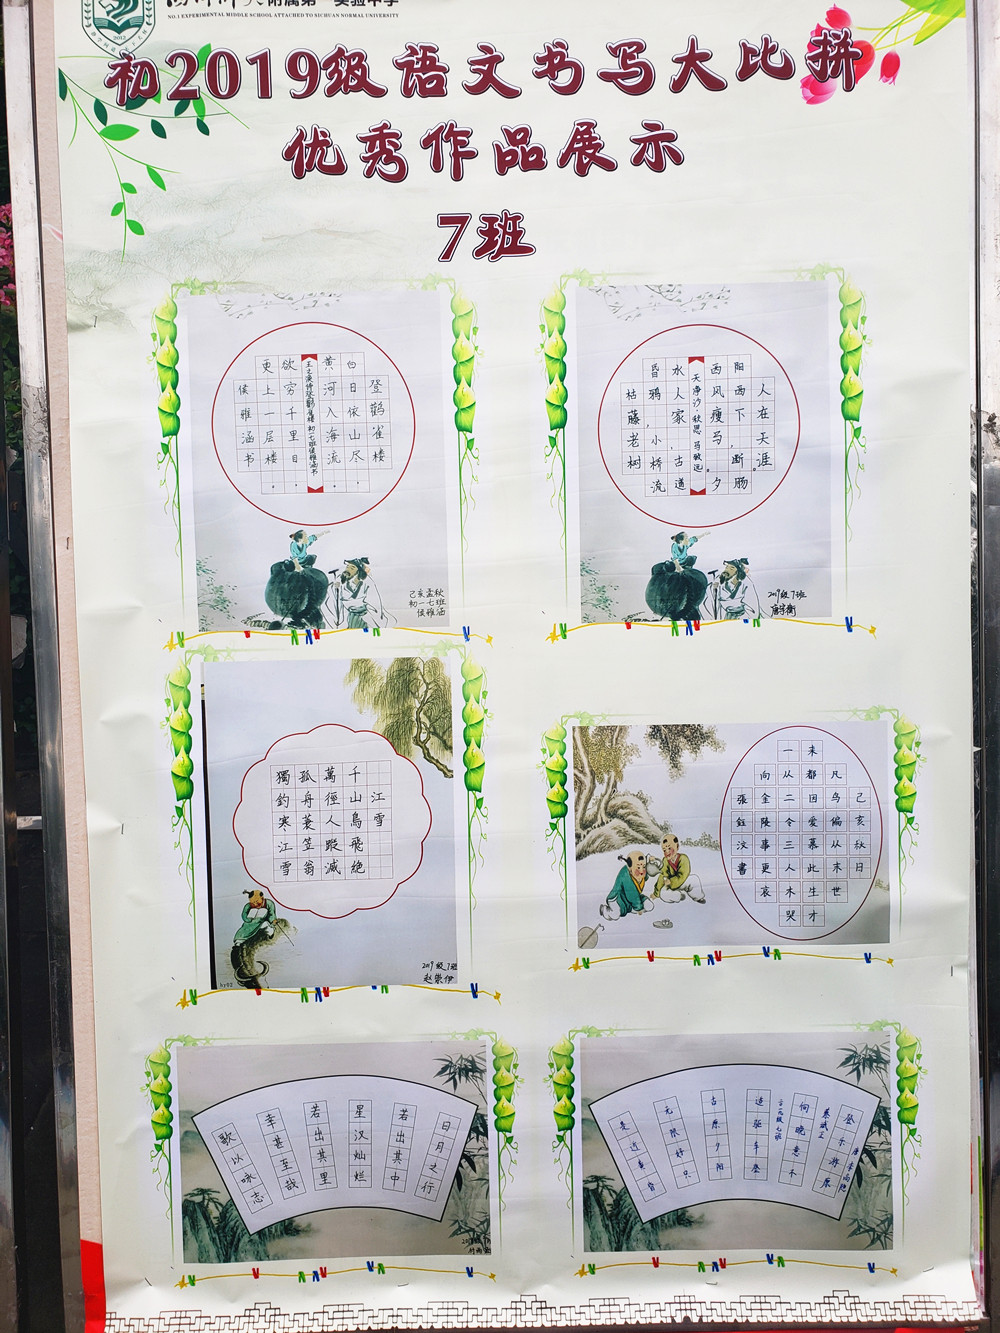 附属第一实验中学
NO.1 EXPERIMENTAL MIDDLE SCHOOL ATTACHED TO SICHUAN NORMAL UNIVERSITY
初2019级语文书写大比拼
优秀作品展示
7班
登鹳雀楼
白日依山尽，
黄河入海流。
王之涣诗登鹳雀楼 初一七班侯雅涵书
欲穷千里目，
更上一层楼。
侯雅涵书
己亥孟秋
初一七班
侯雅涵
枯藤老树
昏鸦，小桥流
水人家 古道
天净沙·秋思 马致远
西风瘦马。夕
阳西下，断肠
人在天涯。
2019级7班
江雪
千山鳥飛絶
萬徑人蹤滅
孤舟蓑笠翁
獨釣寒江雪
2019级7班
赵崇伊
己亥秋日
凡鸟偏从末世
来都因爱慕此生才
一从二令三人木哭
向金陵事更哀
張鈺汶書
日月之行
若出其中
星汉灿烂
若出其里
幸甚至哉
歌以咏志
登乐游原
唐李商隐
向晚意不
适驱车登
古原夕阳
无限好只
是近黄昏